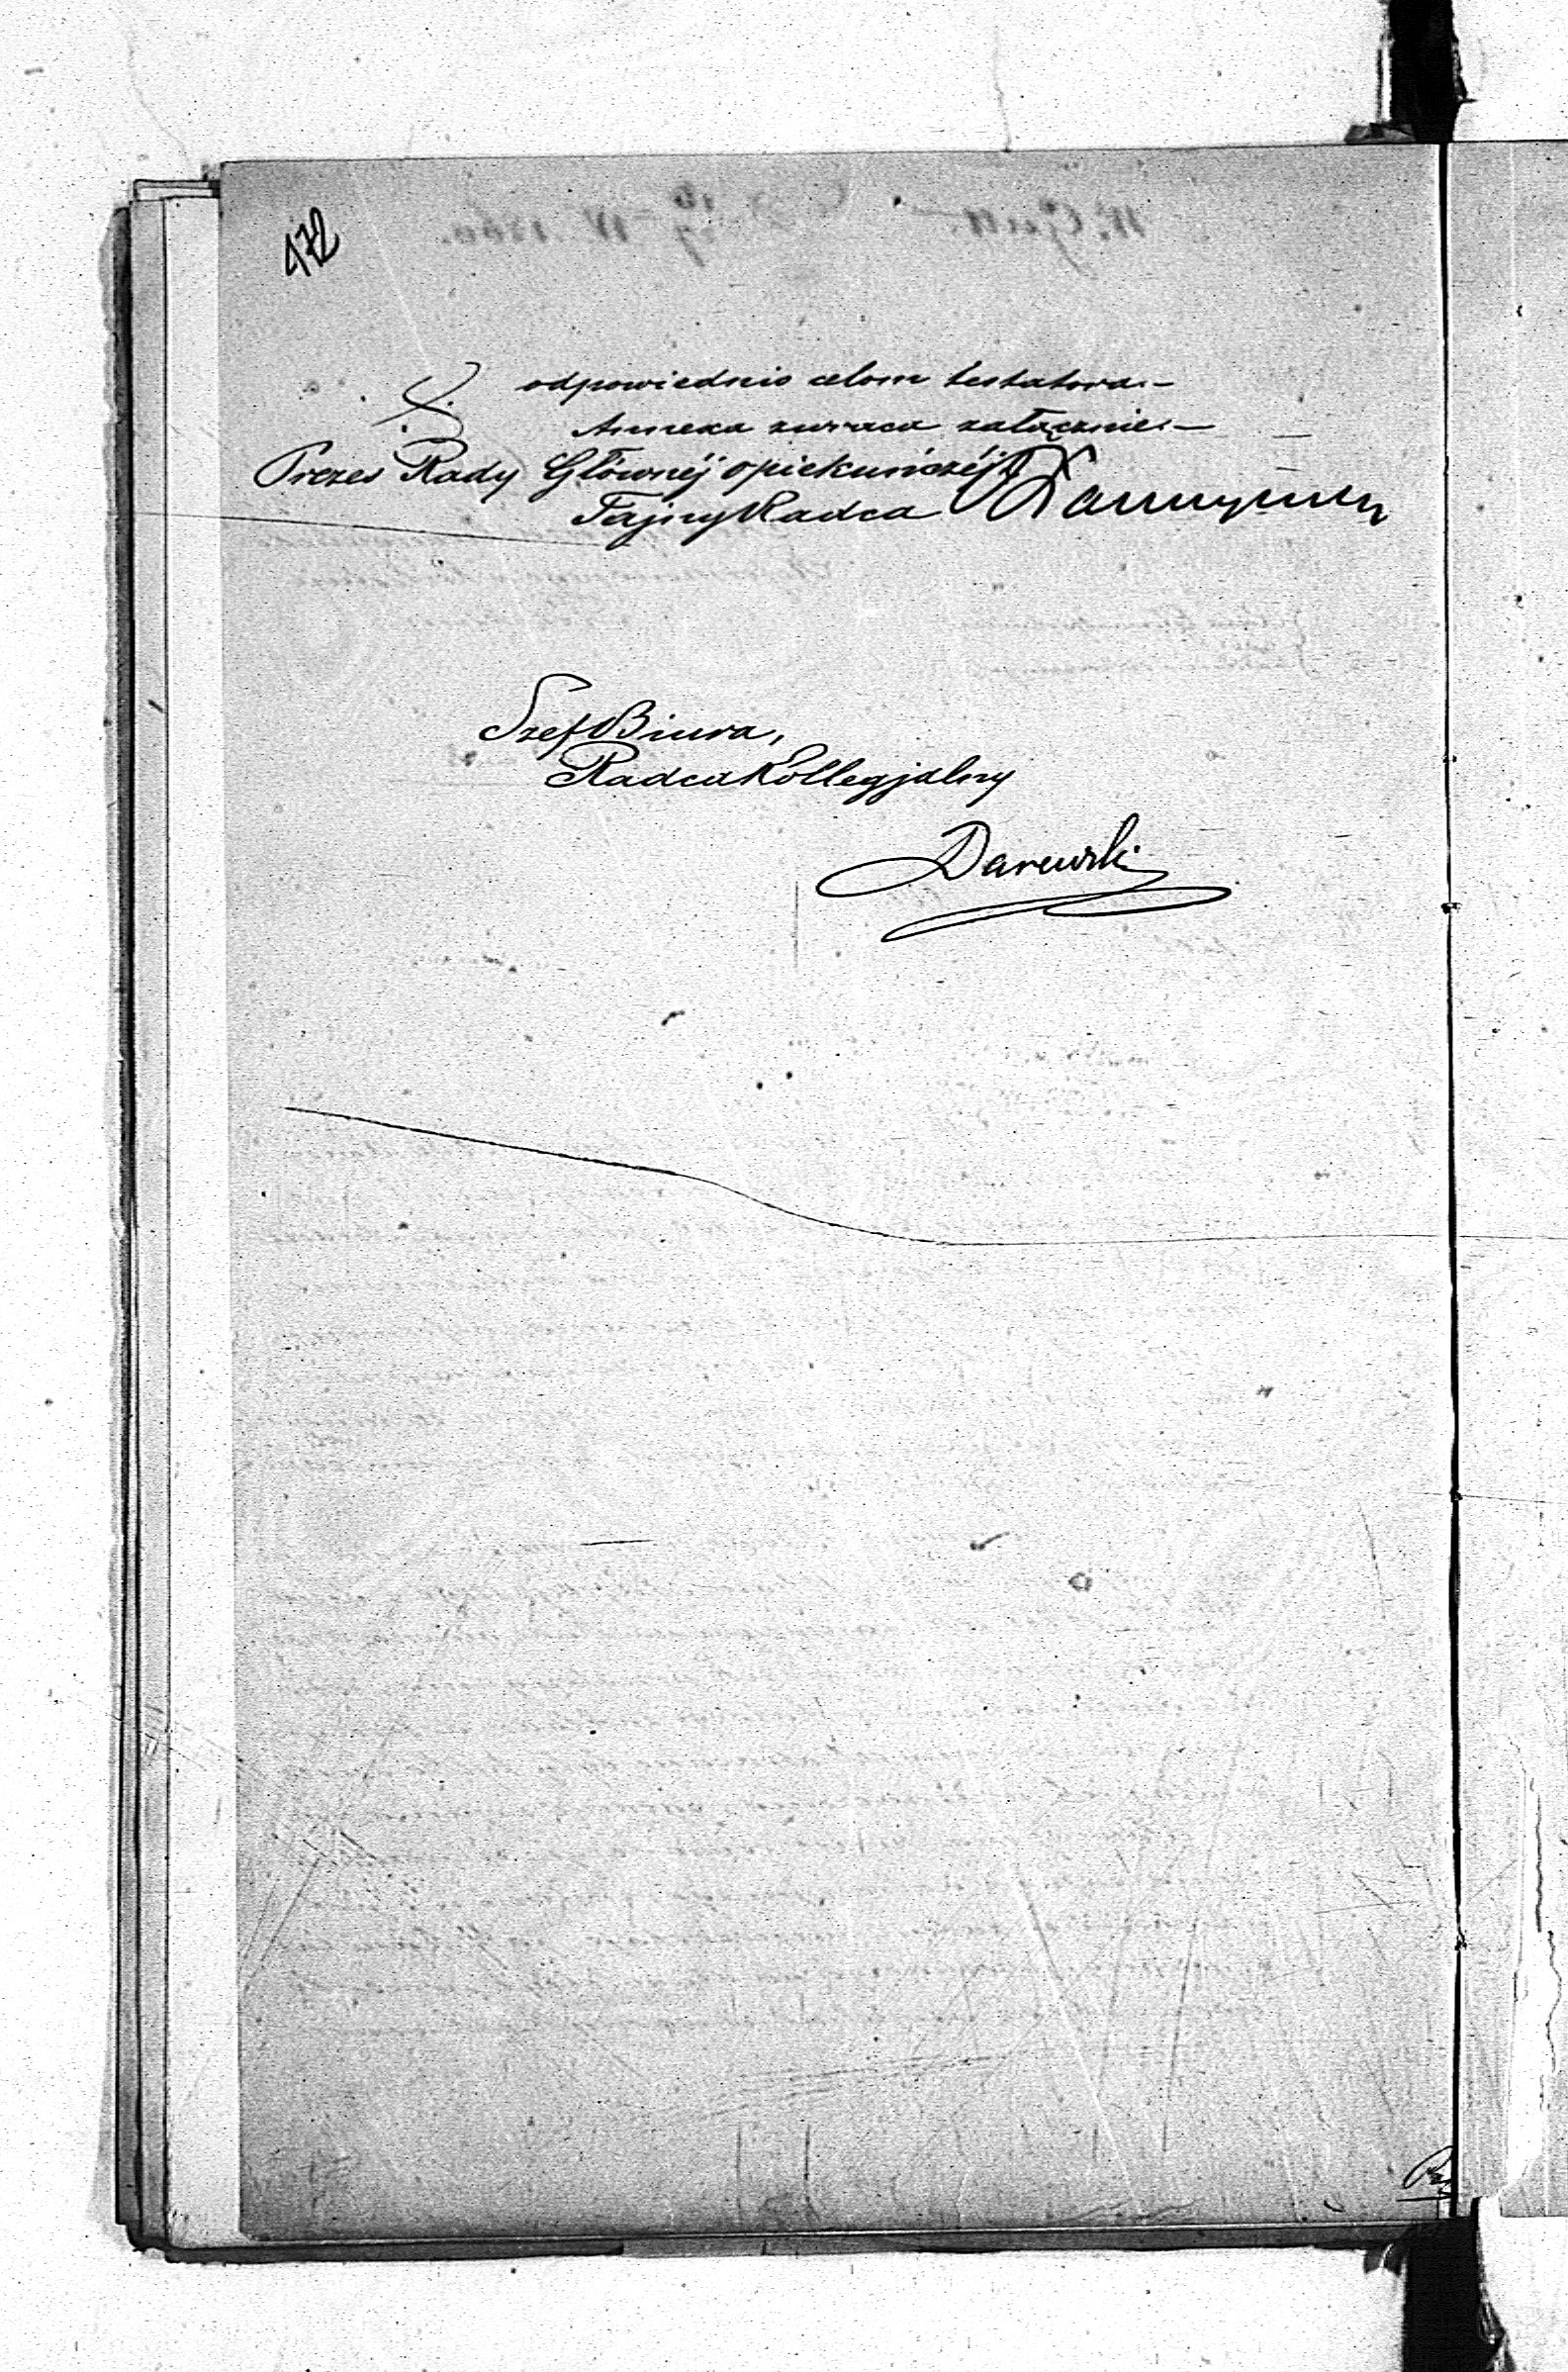 472
odpowiednio celom testatora.—
Annexa zwraca załącznie.—
Prezes Rady Głównéj Opiekuńczéj
Tajny Radca
Szef Biura,
Radca Kollegjalny
Darewski